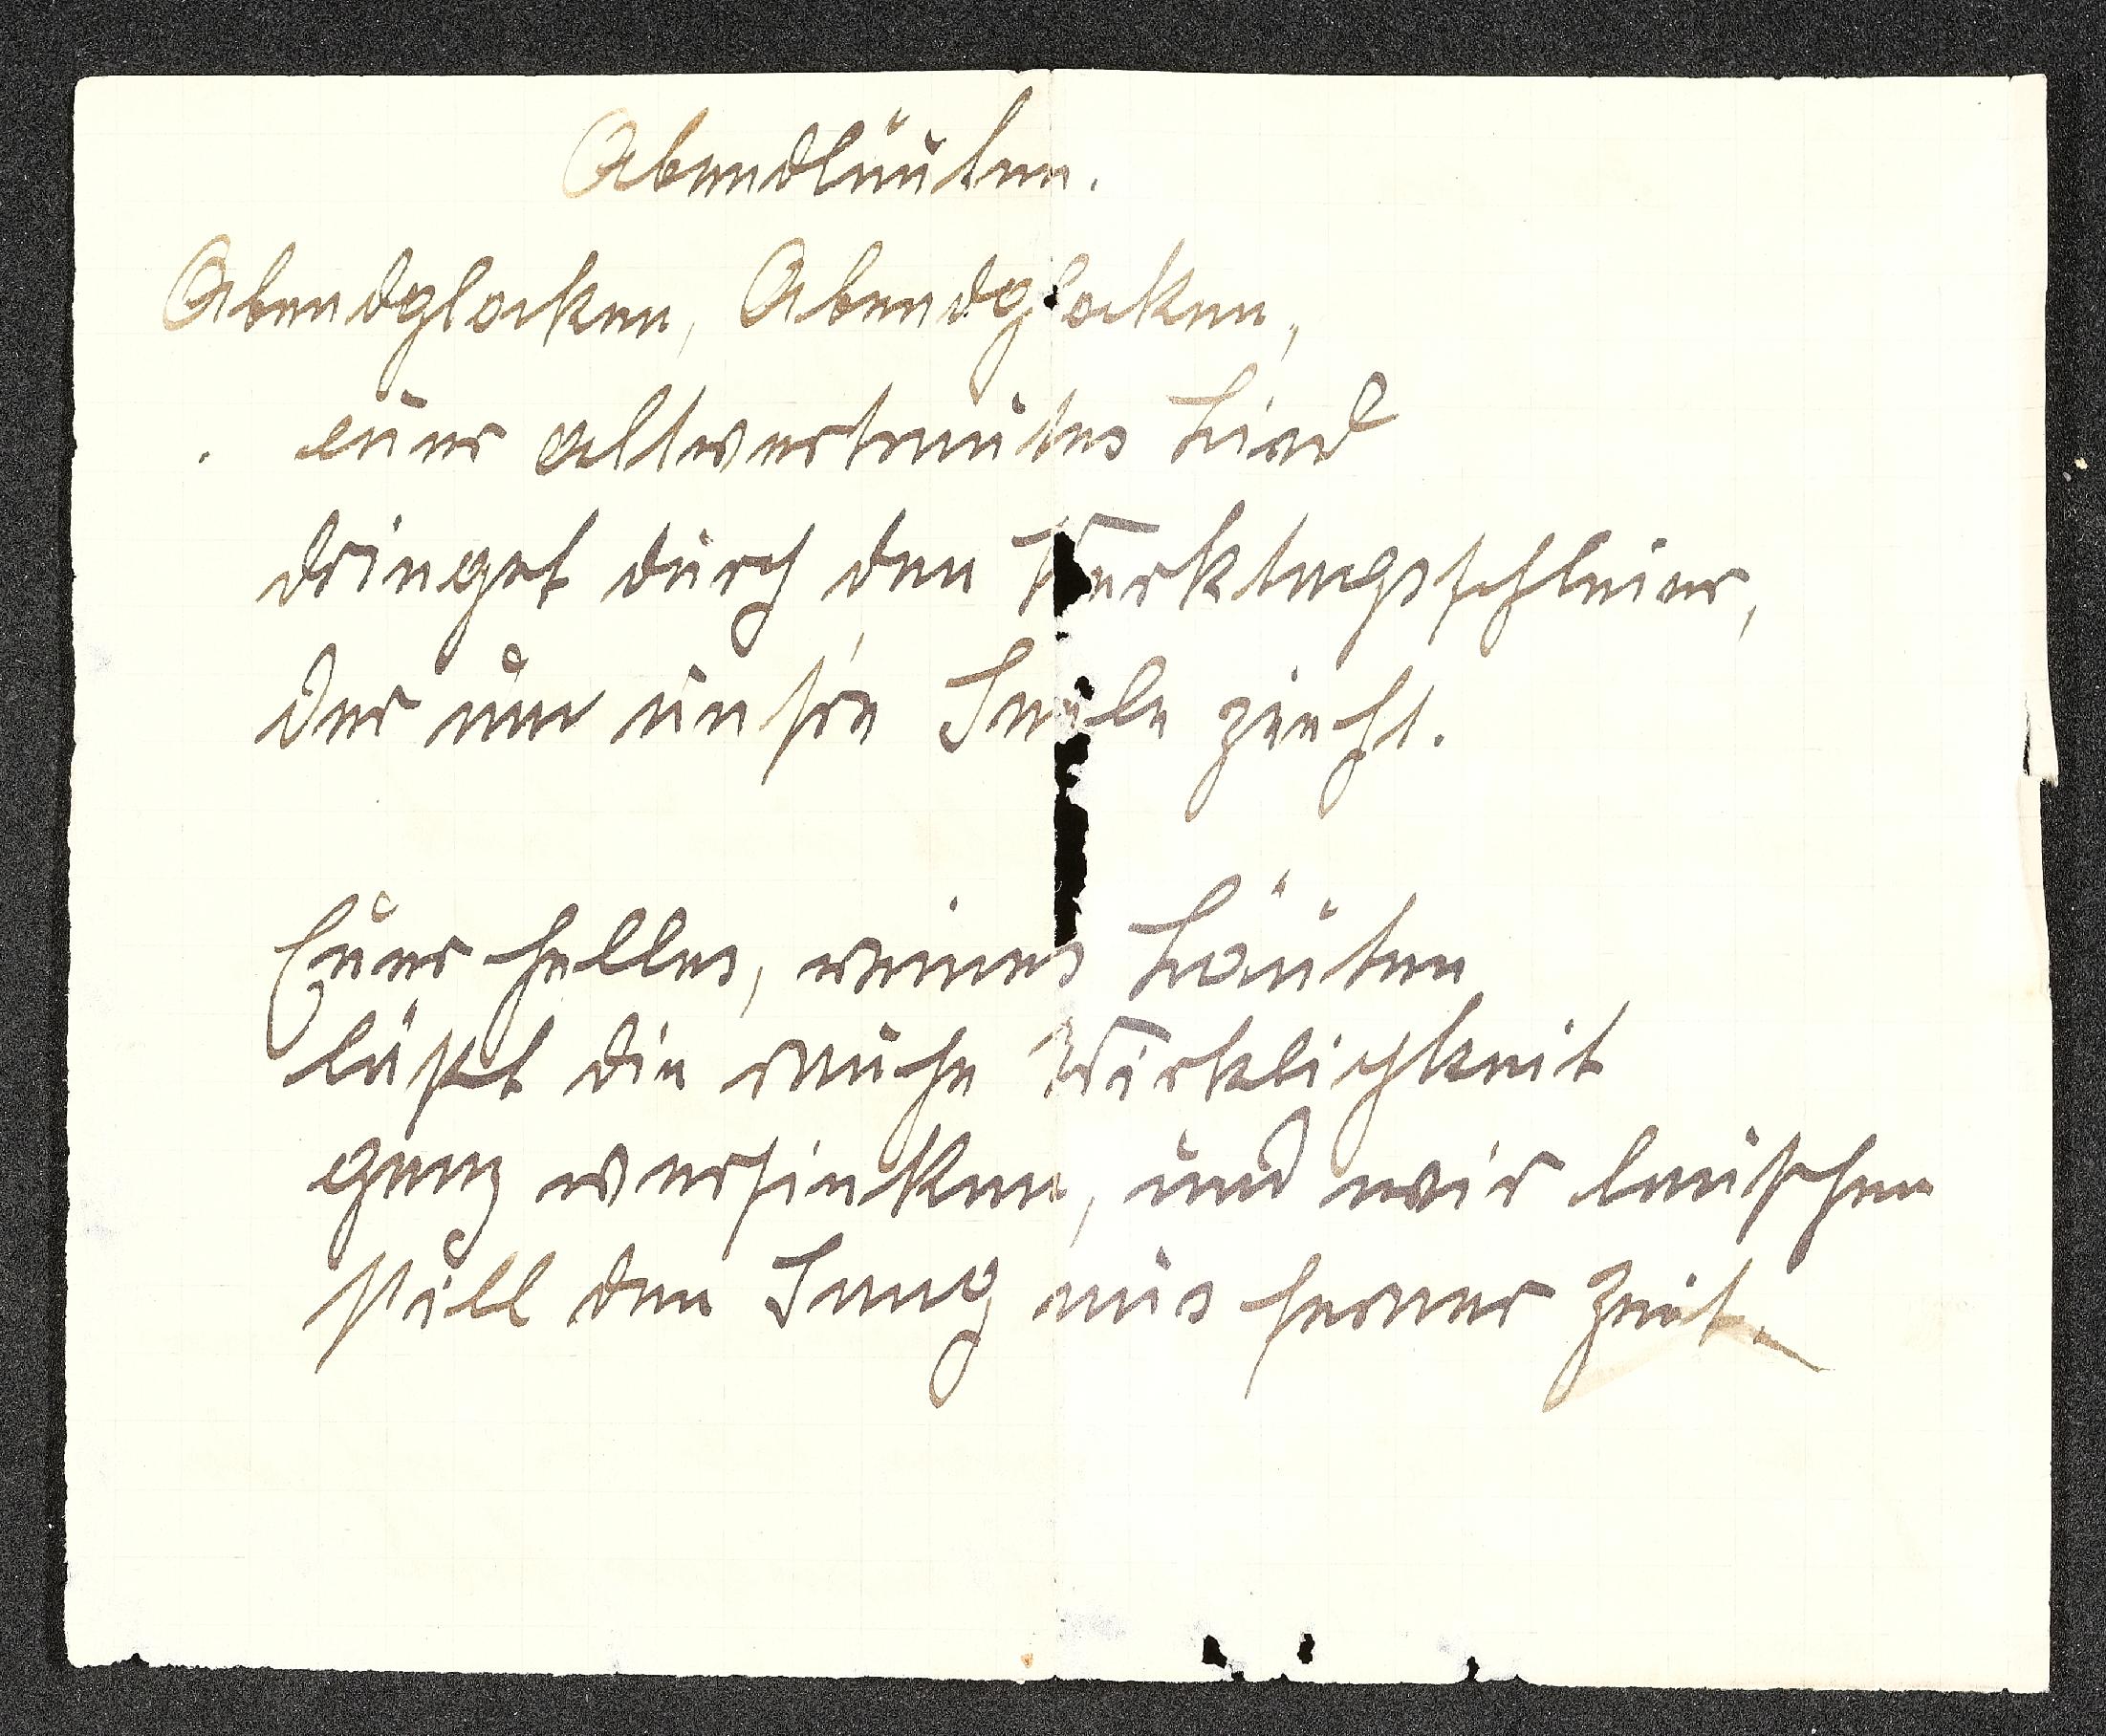 Abendläuten.
Abendglocken, Abendglocken,
euer altvertrautes Lied
dringet durch den Werktagsschleier,
der um unsre Seele zieht.
Euer helles, reines Läuten
läßt die rauhe Wirklichkeit
ganz versinken, und wir lauschen
still den Sang aus ferner Zeit.